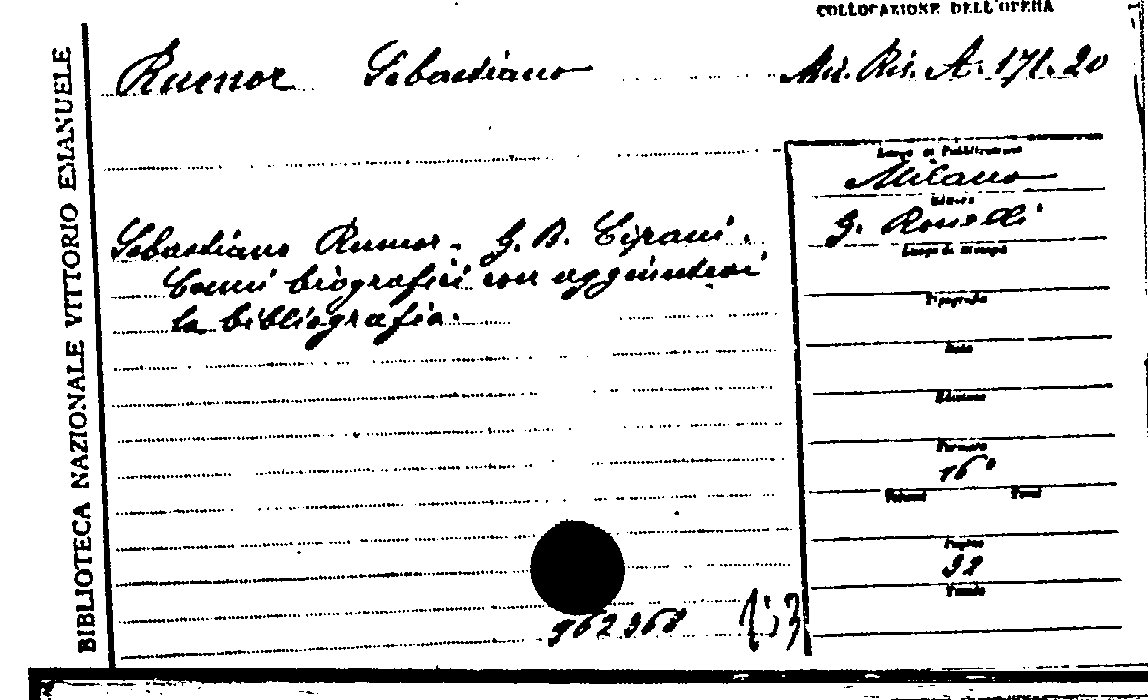 COLLOCAZIONE DELL'OPERA
BIBLIOTECA NAZIONALE VITTORIO EMANUELE
Rumor Sebastiano
Mis. Ris. A. 171. 20
Luogo di Pubblicazione
Milano
Editore
Sebastiano Rumor. G. B. Cipani.
Cenni biografici con aggiuntovi
la bibliografia.
Luogo di stampa
Tipografia
Data
Edizione
Formato
16°
Volumi Tomi
Pagine
32
962368